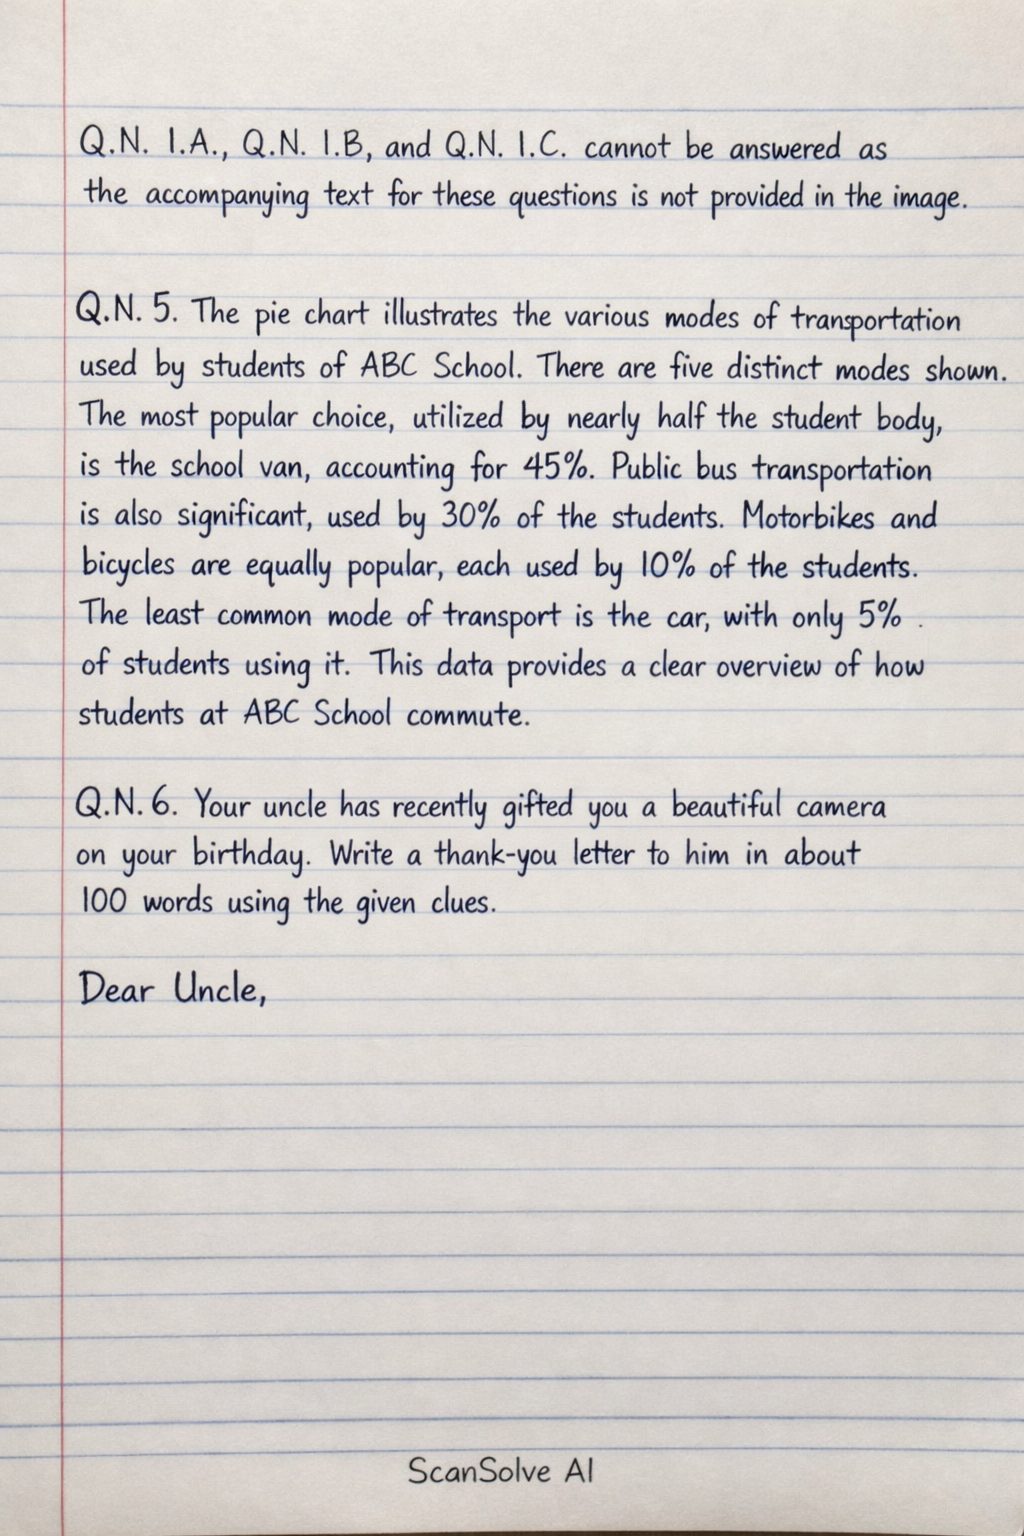 Q.N. 1.A., Q.N. 1.B, and Q.N. 1.C. cannot be answered as
the accompanying text for these questions is not provided in the image.
Q.N. 5. The pie chart illustrates the various modes of transportation
used by students of ABC School. There are five distinct modes shown.
The most popular choice, utilized by nearly half the student body,
is the school van, accounting for 45%. Public bus transportation
is also significant, used by 30% of the students. Motorbikes and
bicycles are equally popular, each used by 10% of the students.
The least common mode of transport is the car, with only 5% .
of students using it. This data provides a clear overview of how
students at ABC School commute.
Q.N. 6. Your uncle has recently gifted you a beautiful camera
on your birthday. Write a thank-you letter to him in about
100 words using the given clues.
Dear Uncle,
ScanSolve AI